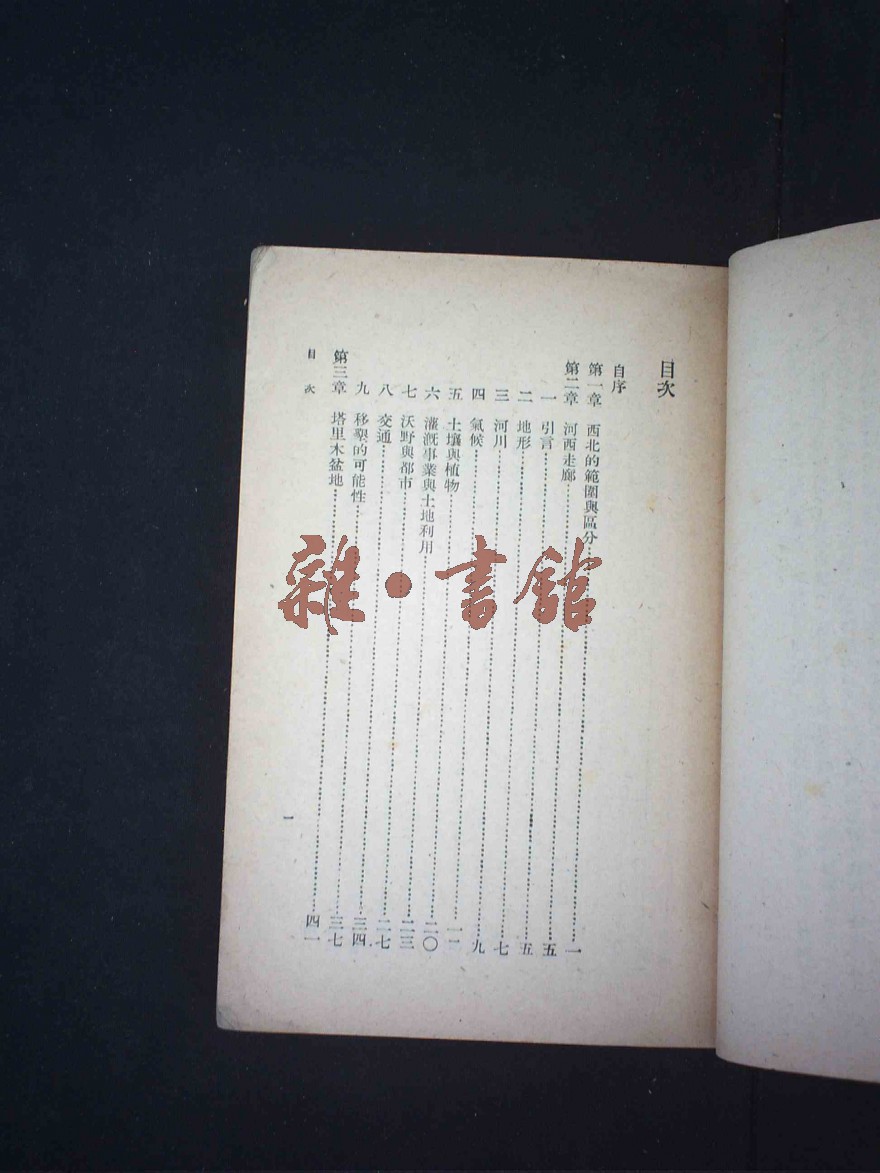 目次
自序
第一章 西北的範圍與區分……一
第二章 河西走廊……五
一 引言……五
二 地形……七
三 河川……九
四 氣候……一二
五 土壤與植物……二〇
六 灌溉事業與土地利用……二三
七 沃野與都市……二七
八 交通……三四
九 移墾的可能性……三七
第三章 塔里木盆地……四一
目次
一
雜·書館